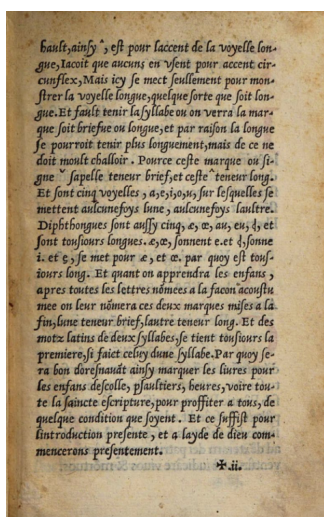 hault,ainſy ^, eſt pour laccent de la voyelle lon-
gue,Iacoit que aucuns en vſent pour accent cir-
cunflex,Mais icy ſe mect ſeullement pour mon-
ſtrer la voyelle longue,quelque ſorte que ſoit lon-
gue.Et fault tenir la ſyllabe ou on verra la mar-
que ſoit briefue ou longue,et par raiſon la longue
ſe pourroit tenir plus longuement,mais de ce ne
doit moult challoir. Pource ceſte marque ou ſi-
gne ˇ ſapelle teneur brief,et ceſte ^ teneur long.
Et ſont cinq voyelles , a,e,i,o,u, ſur leſquelles ſe
mettent aulcunefoys lune , aulcunefoys laultre.
Diphthongues ſont auſſy cinq, æ, œ, au, eu, et
ſont touſiours longues. æ, œ, ſonnent e. et ſonne
i. et ę, ſe met pour æ, et œ. par quoy eſt touſ-
iours long. Et quant on apprendra les enfans ,
apres toutes les lettres nõmees a la facon acouſtu
mee on leur nõmera ces deux marques miſes a la
fin,lune teneur brief,lautre teneur long. Et des
motz latins de deux ſyllabes,ſe tient touſiours la
premiere,ſi faict celuy dune ſyllabe.Par quoy ſe-
ra bon doreſnauãt ainſy marquer les liures pour
les enfans deſcolle, pſaultiers, heures, voire tou-
te la ſaincte eſcripture, pour proffiter a tous, de
quelque condition que ſoyent . Et ce ſuffiſt pour
lintroduction preſente , et a layde de dieu com-
mencerons preſentement.
✠.ii.